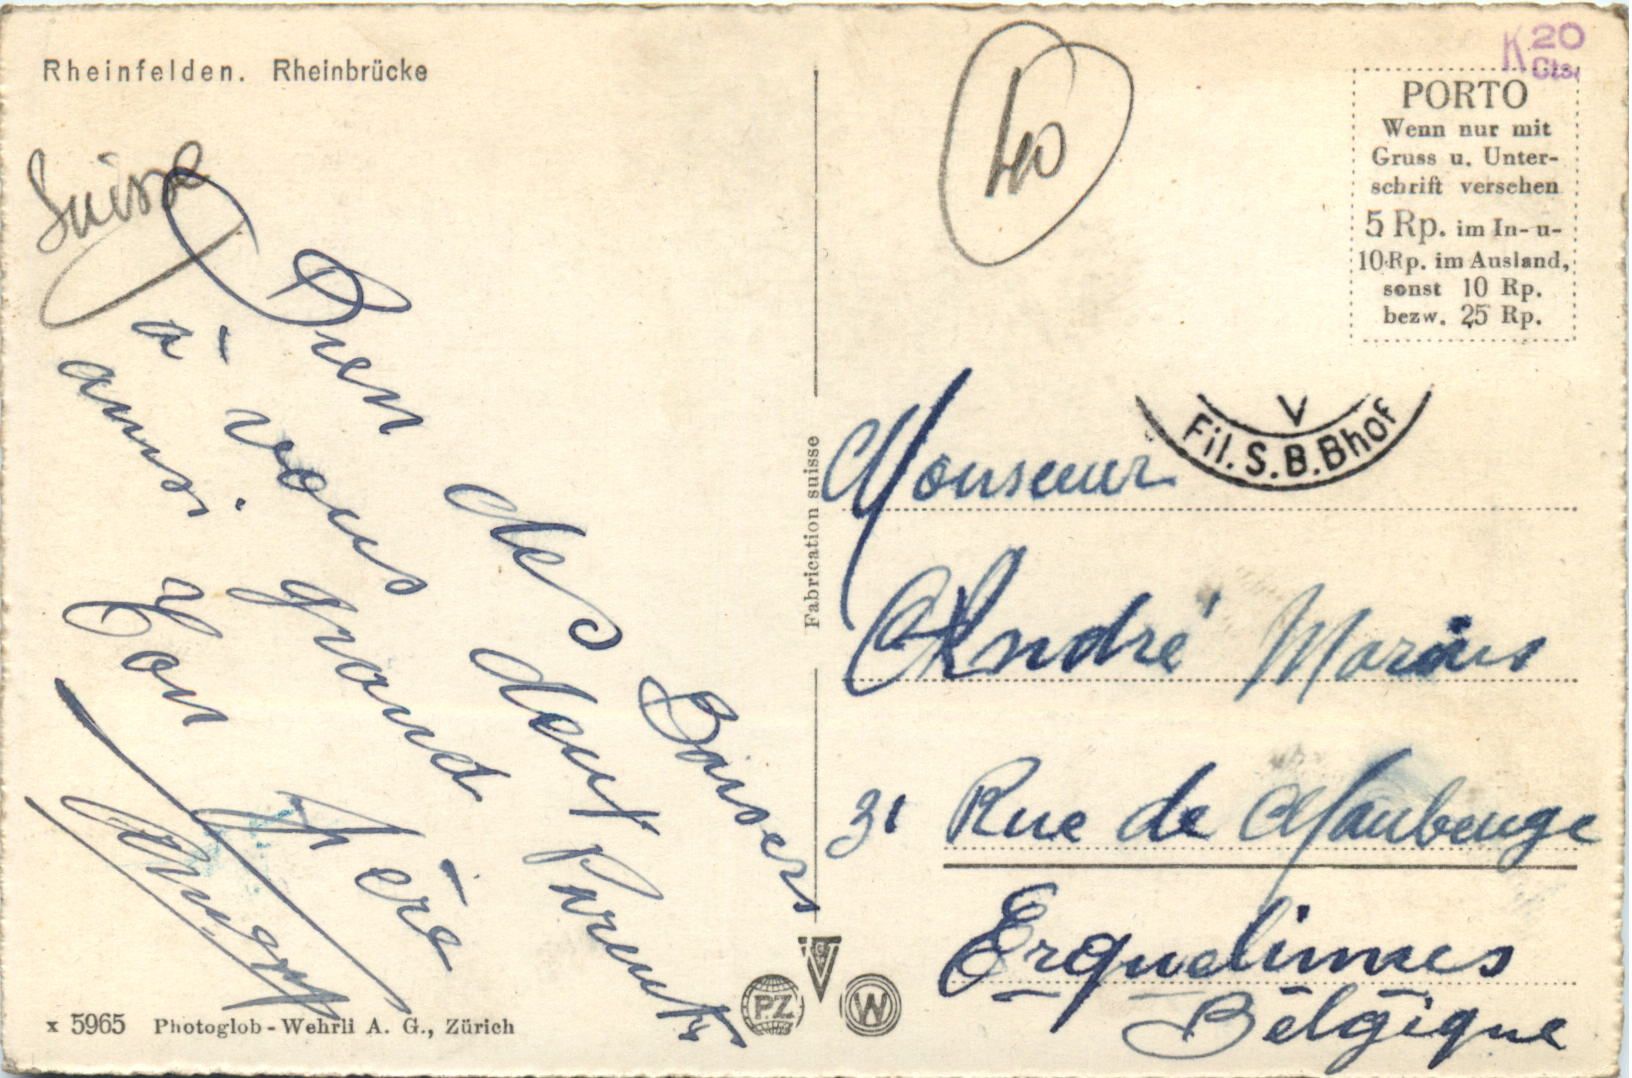 Rheinfelden. Rheinbrücke
Suisse
Bien des Baisers
à vous deux
aussi grand Parents
Ton Père
40
K 20
Cts.
PORTO
Wenn nur mit
Gruss u. Unter-
schrift versehen
5 Rp. im In- u-
10 Rp. im Ausland,
sonst 10 Rp.
bezw. 25 Rp.
V
Fil. S.B.Bhof
Fabrication suisse
Monsieur
André Marius
31 Rue de Maubeuge
Erquelinnes
Belgique
PZ
W
x 5965 Photoglob-Wehrli A. G., Zürich